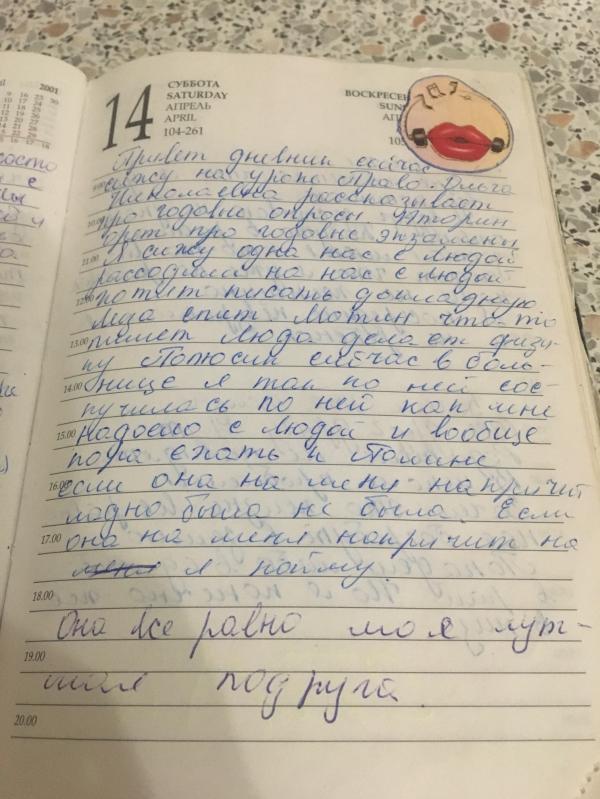 2001
14
СУББОТА
SATURDAY
АПРЕЛЬ
APRIL
104-261
ВОСКРЕСЕН
SUN
АП
105
Привет дневник сейчас
сижу на уроке Право. Ольга
Николаевна рассказывает
10.00
про годовые опросы. Что рин
орет про годовые экзамены
11.00
Я сижу одна нас с Людой
рассадили на нас с людой
12.00
хотят писать докладную
Лиза спит Мотин что-то
13.00
пишет Люда делает физи-
ку Полюсик сейчас в боль-
14.00
нице я так по ней сос-
кучилась по ней как мне
15.00
надоело с Людой и вообще
пора ехать к Полине
16.00
если она на меня накричит
ладно была не была. Если
17.00
она на меня накричит на
меня я пойму.
18.00
Она все равно моя лут-
19.00
шая подруга.
20.00